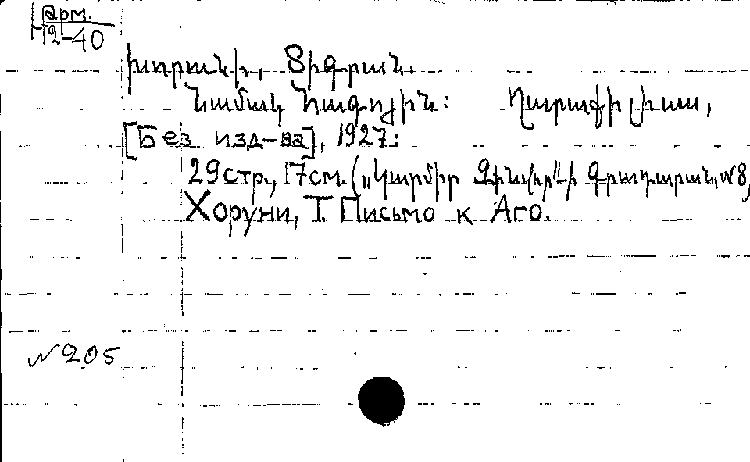 Арм.
12-40
Խորունի, Տիգրան.
Նամակ Հագոյին: Ղարաքիլիսա,
[Без изд-ва], 1927:
29 стр., 17 см. („Կարմիր Զինվոր"-ի Գրադարան, №8,
Хоруни, Т. Письмо к Аго.
№ 205